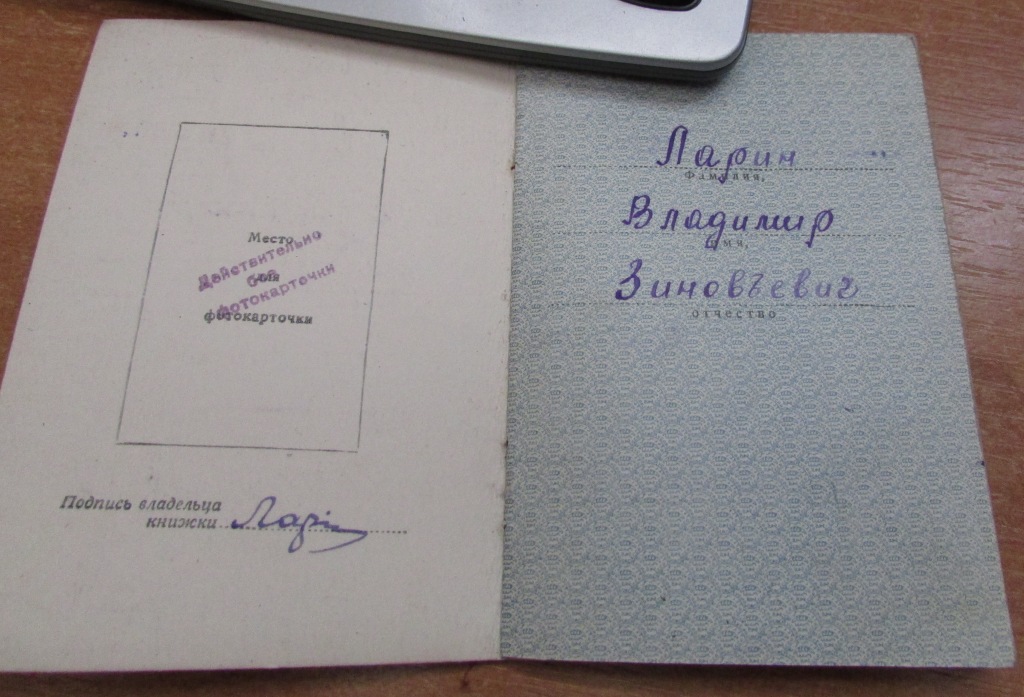 Место
для
фотокарточки
Действительно
без
фотокарточки
Подпись владельца
книжки Ларин
Ларин
фамилия,
Владимир
имя,
Зиновьевич
отчество